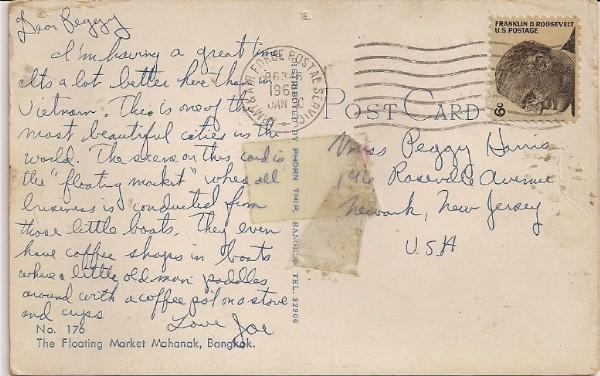 Dear Peggy
I'm having a great time
Its a lot better here than in
Vietnam. This is one of the
most beautiful cities in the
world. The scene on this card is
the "floating market" where all
business is conducted from
those little boats. They even
have coffee shops in boats
where a little old man paddles
around with a coffee pot on a stove
and cups
Love Joe
No. 176
The Floating Market Mahanak, Bangkok.
PHORN THIP, BANGKOK, TEL. 22806
ARMY & AIR FORCE POSTAL SERVICE
JAN
POST CARD
FRANKLIN D. ROOSEVELT
U.S. POSTAGE
6c
Miss Peggy Harris
Roseville Avenue
Newark, New Jersey
USA